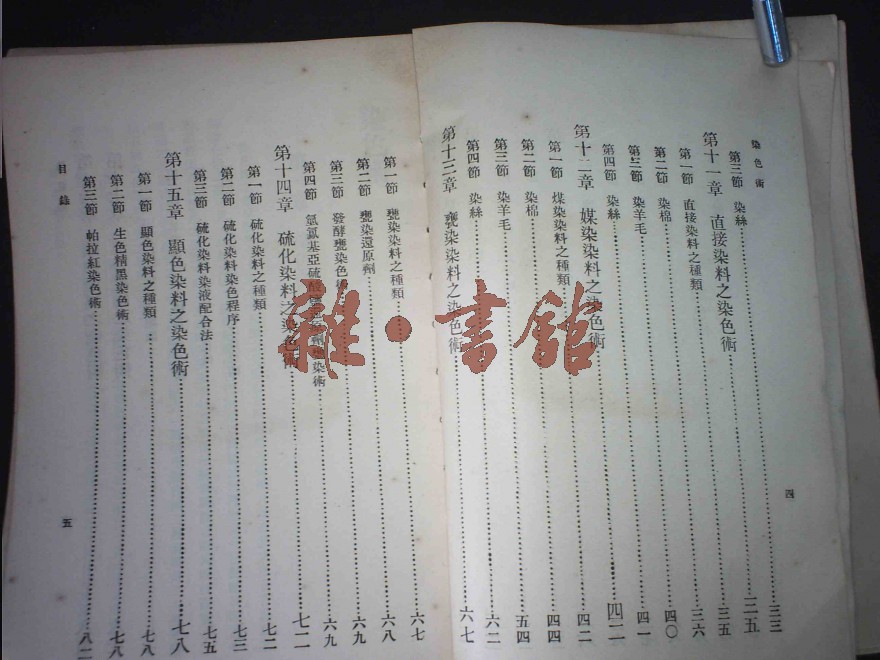 染色術
第三節 染絲 三三
第十一章 直接染料之染色術 三五
第一節 直接染料之種類 三六
第二節 染棉 四〇
第三節 染羊毛 四一
第四節 染絲 四二
第十二章 媒染染料之染色術 四二
第一節 煤染染料之種類 四四
第二節 染棉 五四
第三節 染羊毛 六二
第四節 染絲
第十三章 甕染染料之染色術 六七
四
第一節 甕染染料之種類 六七
第二節 甕染還原劑 六八
第三節 發酵甕染色 六九
第四節 六九
第十四章 硫化染料之染色術 七二
第一節 硫化染料之種類 七二
第二節 硫化染料染色程序 七三
第三節 硫化染料染液配合法 七五
第十五章 顯色染料之染色術 七八
第一節 顯色染料之種類 七八
第二節 生色精黑染色術 七八
第三節 帕拉紅染色術 八二
目錄
五
雜·書館